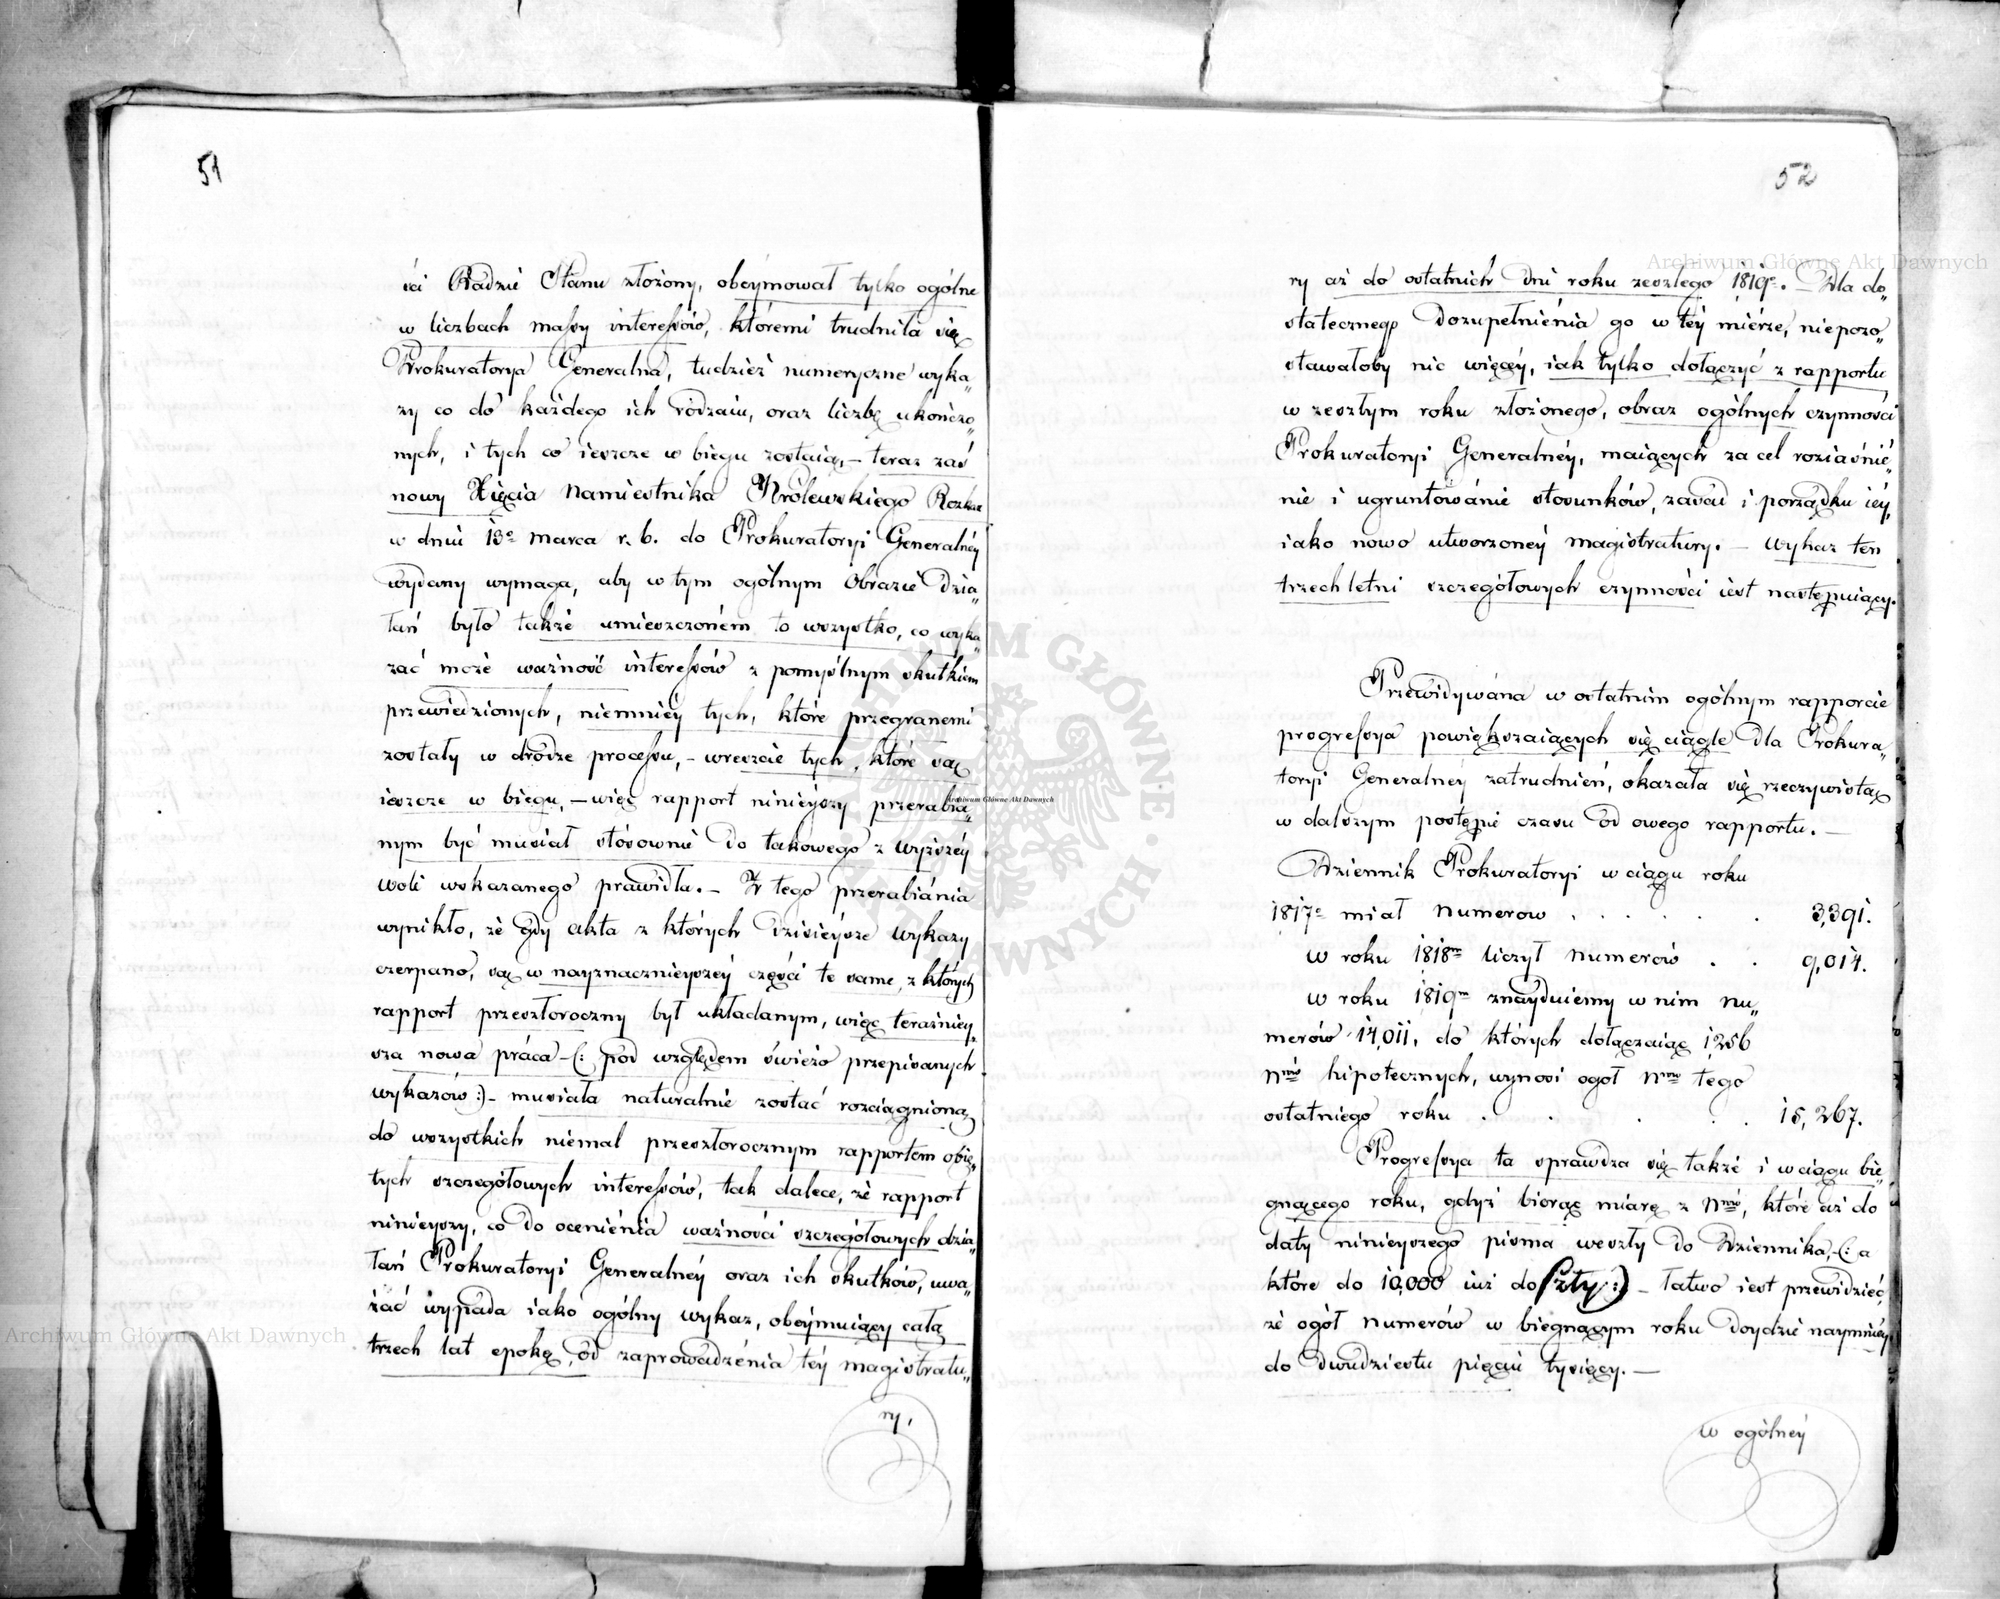 51
ści Radzie Stanu złożony, obeymował tylko ogólne
w liczbach massy interessów, któremi trudniła się
Prokuratorya Generalna, tudzież numeryczne wyka„
zy co do każdego ich rodzaiu, oraz liczbę ukończo„
nych, i tych co ieszcze w biegu zostaią, – teraz zaś
nowy Xięcia Namiestnika Królewskiego Rozkaz
w dniu 13º marca r. b. do Prokuratoryi Generalnéy
wydany wymaga, aby w tym ogólnym Obrazie Dzia„
łań było także umieszczoném to wszystko, co wyka„
zać może ważność interessów z pomyślnym skutkiem
przewiedzionych, niemniéy tych, które przegranemi
zostały w drodze processu, – wreszcie tych, które są
ieszcze w biegu, – więc rapport ninieyszy przerabia„
nym być musiał stósownie do takowego z wyższéy
woli wskazanego prawidła. – Z tego przerabiánia
wynikło, że gdy akta z których dzisieysze wykazy
czerpano, są w nayznacznieyszéy części te same, z których
rapport przeszłoroczny był układanym, więc teraźniey„
sza nowa práca – (: pod względem świeżo przepisanych
wykazów :) – musiała naturalnie zostać rozciągnioną
do wszystkich niemal przeszłorocznym rapportem obię„
tych szczegółowych interessów, tak dalece, że rapport
ninieyszy, co do ocenienia ważności szczegółowych dzia„
łań Prokuratoryi Generalnéy oraz ich skutków, uwa„
żać wypada iako ogólny wykaz, obeymuiący całą
trzech lat epokę, od zaprowadzénia téy magistratu„
ry,
52
ry aż do ostatnich dni roku zeszłego 1819º. Dla do„
statecznego Dozupełniénia go w téy miérze, niepozo„
stawałoby nic więcéy, iak tylko dołączyć z rapportu
w zeszłym roku złożonego, obraz ogólnych czynności
Prokuratoryi Generalnéy, maiących za cel roziaśnié„
nie i ugruntowánie stosunków, zasad i porządku iéy,
iako nowo utworzonéy magistratury. – Wykaz ten
trzechletni szczegółowych czynności iest następuiący.
Przewidywána w ostatnim ogólnym rapporcie
progressya powiększaiących się ciągle dla Prokura„
toryi Generalnéy zatrudnień, okazała się rzeczywistą
w dalszym postępie czasu od owego rapportu. –
Dziennik Prokuratoryi w ciągu roku
1817º miał numerow . . . . . . 3,391.
w roku 1818m liczył numerów . . 9,014.
w roku 1819m znayduiemy w nim nu„
merów 14,011, do których dołączaiąc 1,256
Nrów hipotecznych, wynosi ogół Nrów tego
ostatniego roku . . . . . 15,267.
Progressya ta sprawdza się także i w ciągu bie„
gnącego roku, gdyż biorąc miarę z Nrów, które aż do
daty ninieyszego pisma weszły do Dziennika, – (: a
które do 10,000 iuż doszły :) – łatwo iest przewidzieć,
że ogół Numerów w biegnącym roku doydzie naymniéy
do dwudziestu pięciu tysięcy. –
w ogólnéy
Archiwum Główne Akt Dawnych
Archiwum Główne Akt Dawnych
Archiwum Główne Akt Dawnych
ARCHIWUM GŁÓWNE AKT DAWNYCH